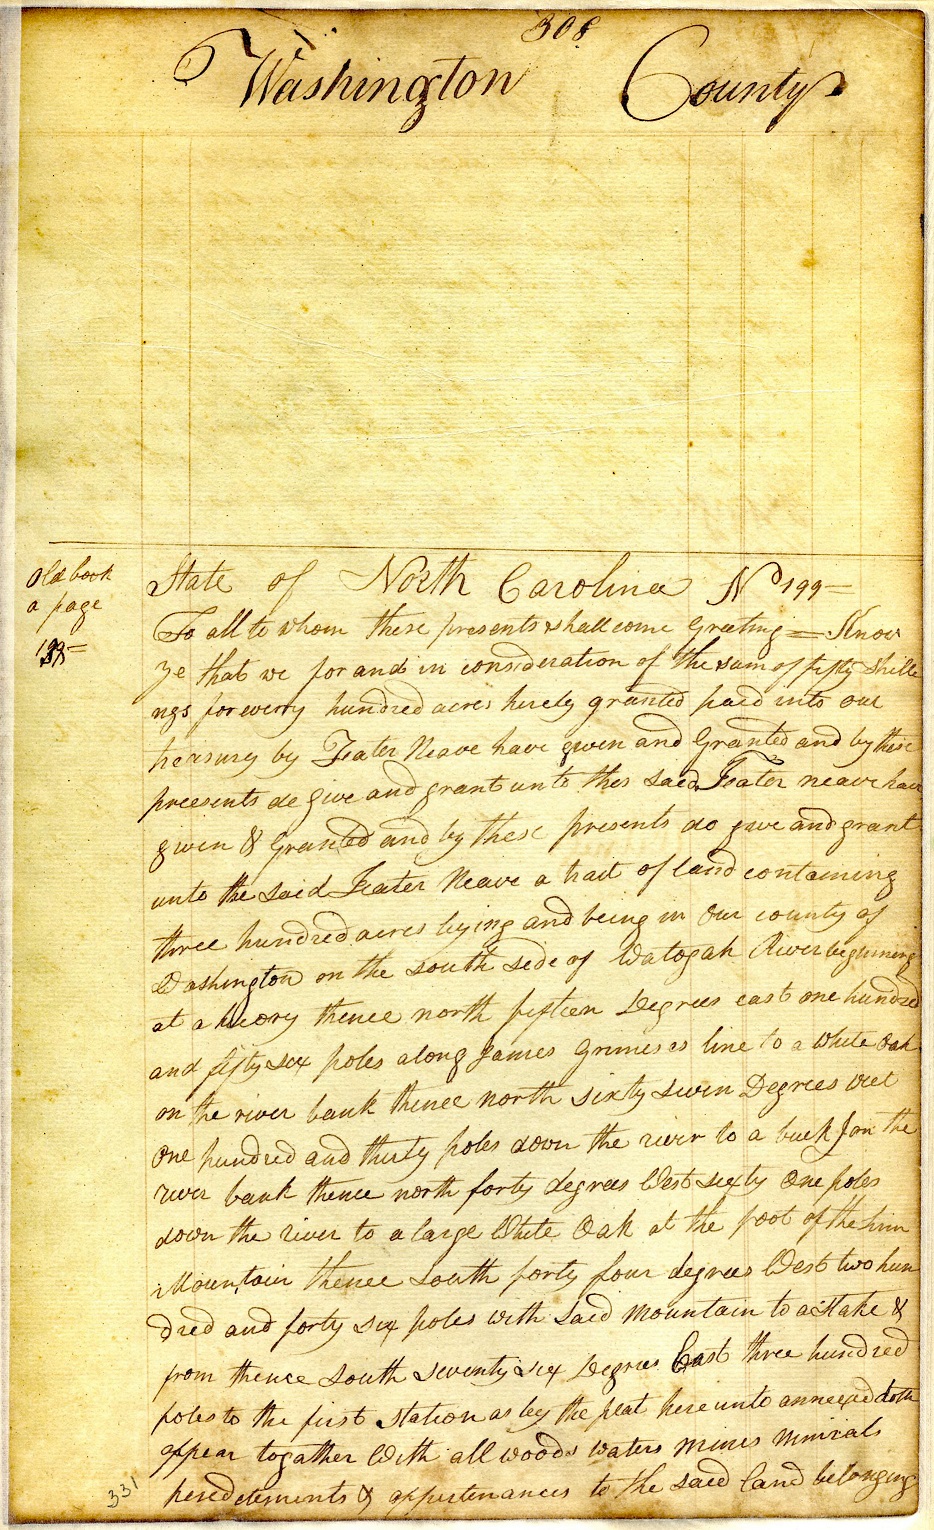 308
Washington County
Old book
a page
State of North Carolina No 199=
To all to whom these presents shall come Greeting = Know
ye that we for and in consideration of the sum of fifty shilli
ngs for every hundred acres hereby granted paid into our
treasury by Teater Neave have given and Granted and by these
preesents do give and grant unto thos said Teater neave have
given & Granted and by these presents do give and grant
unto the said Teater Neave a tract of land containing
three hundred acres lying and being in our county of
Washington on the south side of Watogah River beginning
at a hicory thence north fifteen Degrees east one hundred
and fifty six poles along James Grimeses line to a White Oak
on the river bank thence north sixty seven Degrees west
One hundred and thirty poles down the river to a buck on the
river bank thence north forty degrees West sixty One poles
down the river to a large White Oak at the foot of the
Mountain thence south forty four degrees West two hun
dred and forty six poles with said mountain to a Stake &
from thence south seventy six Degrees East three hundred
poles to the first Station as by the plat here unto annexed doth
appear togather With all woods waters mines minirals
heredetements & appertenances to the said land belonging
331